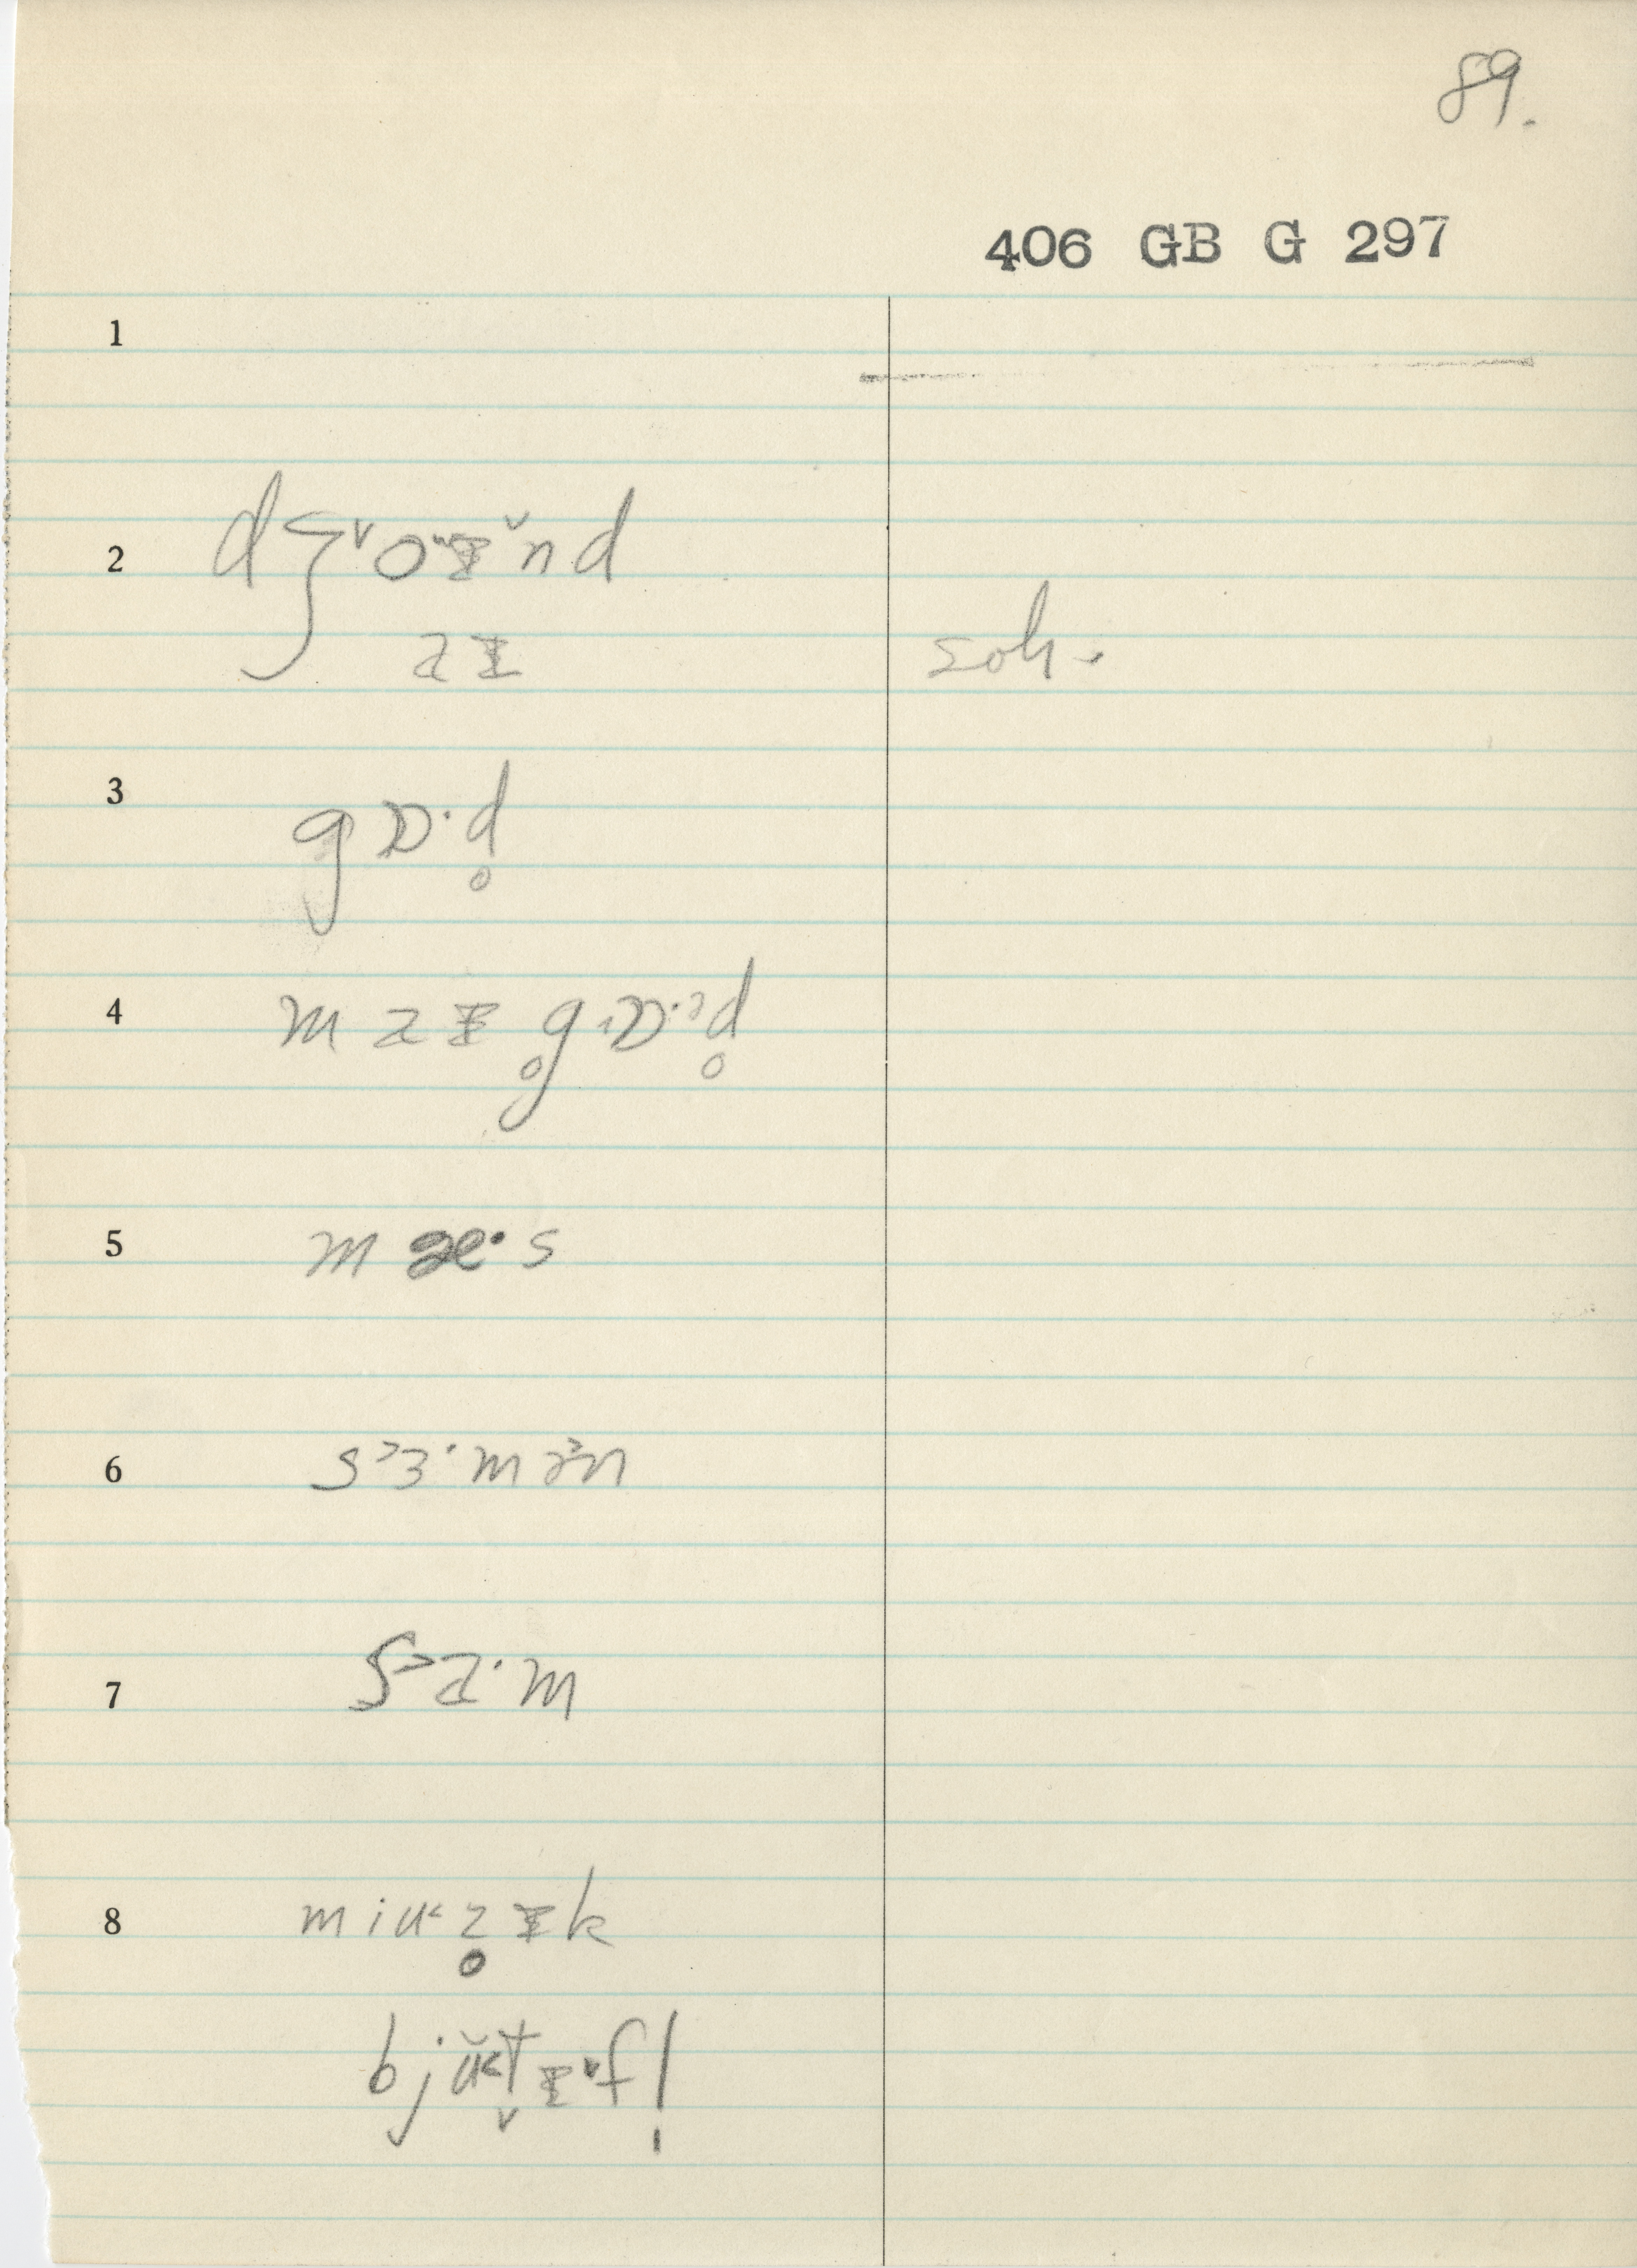 89.
406 GB G 297
1
2 dʒ˅oᵚɪ̆nd
aɪ
soh.
3 gɒ·d̥
4 maɪ g̥ɒ·ɔd̥
5 mæ·s
6 s˃ɜ·mə˃n
7 s˃a·m
8 miu˂z̥ɪk
bjŭ˂t̬ɪ˅f!